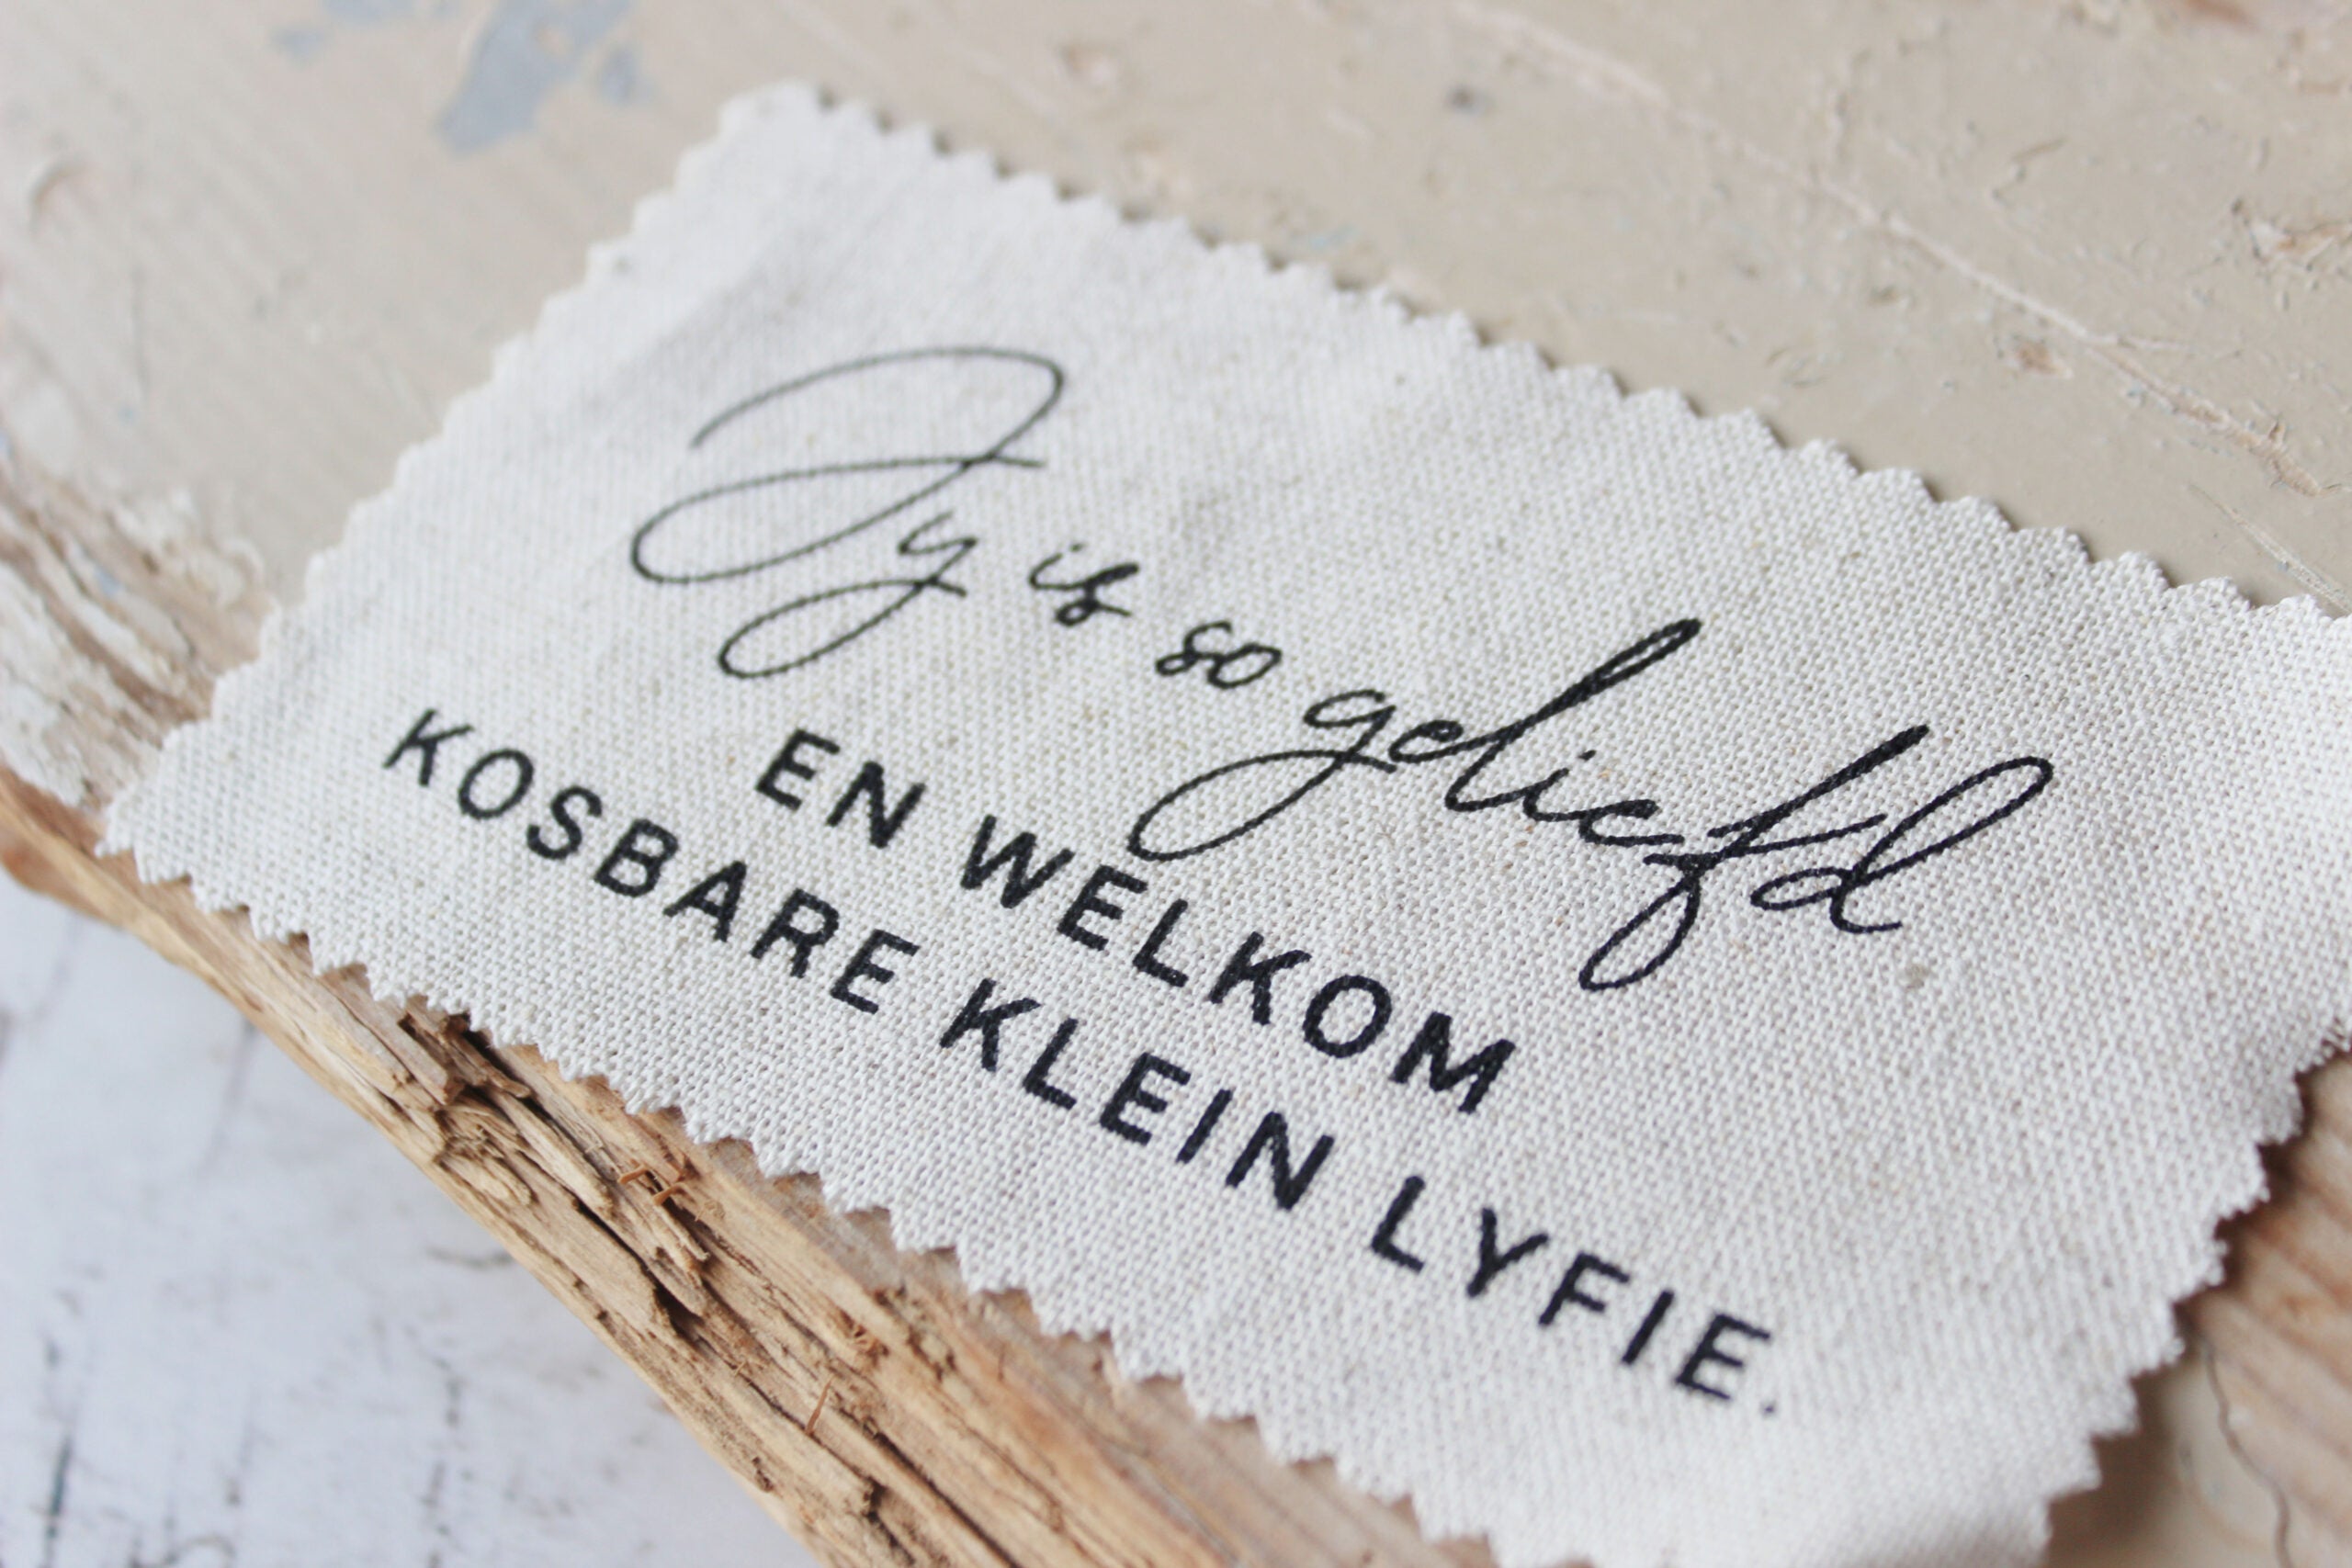 Jy is so geliefd
EN WELKOM
KOSBARE KLEIN LYFIE.